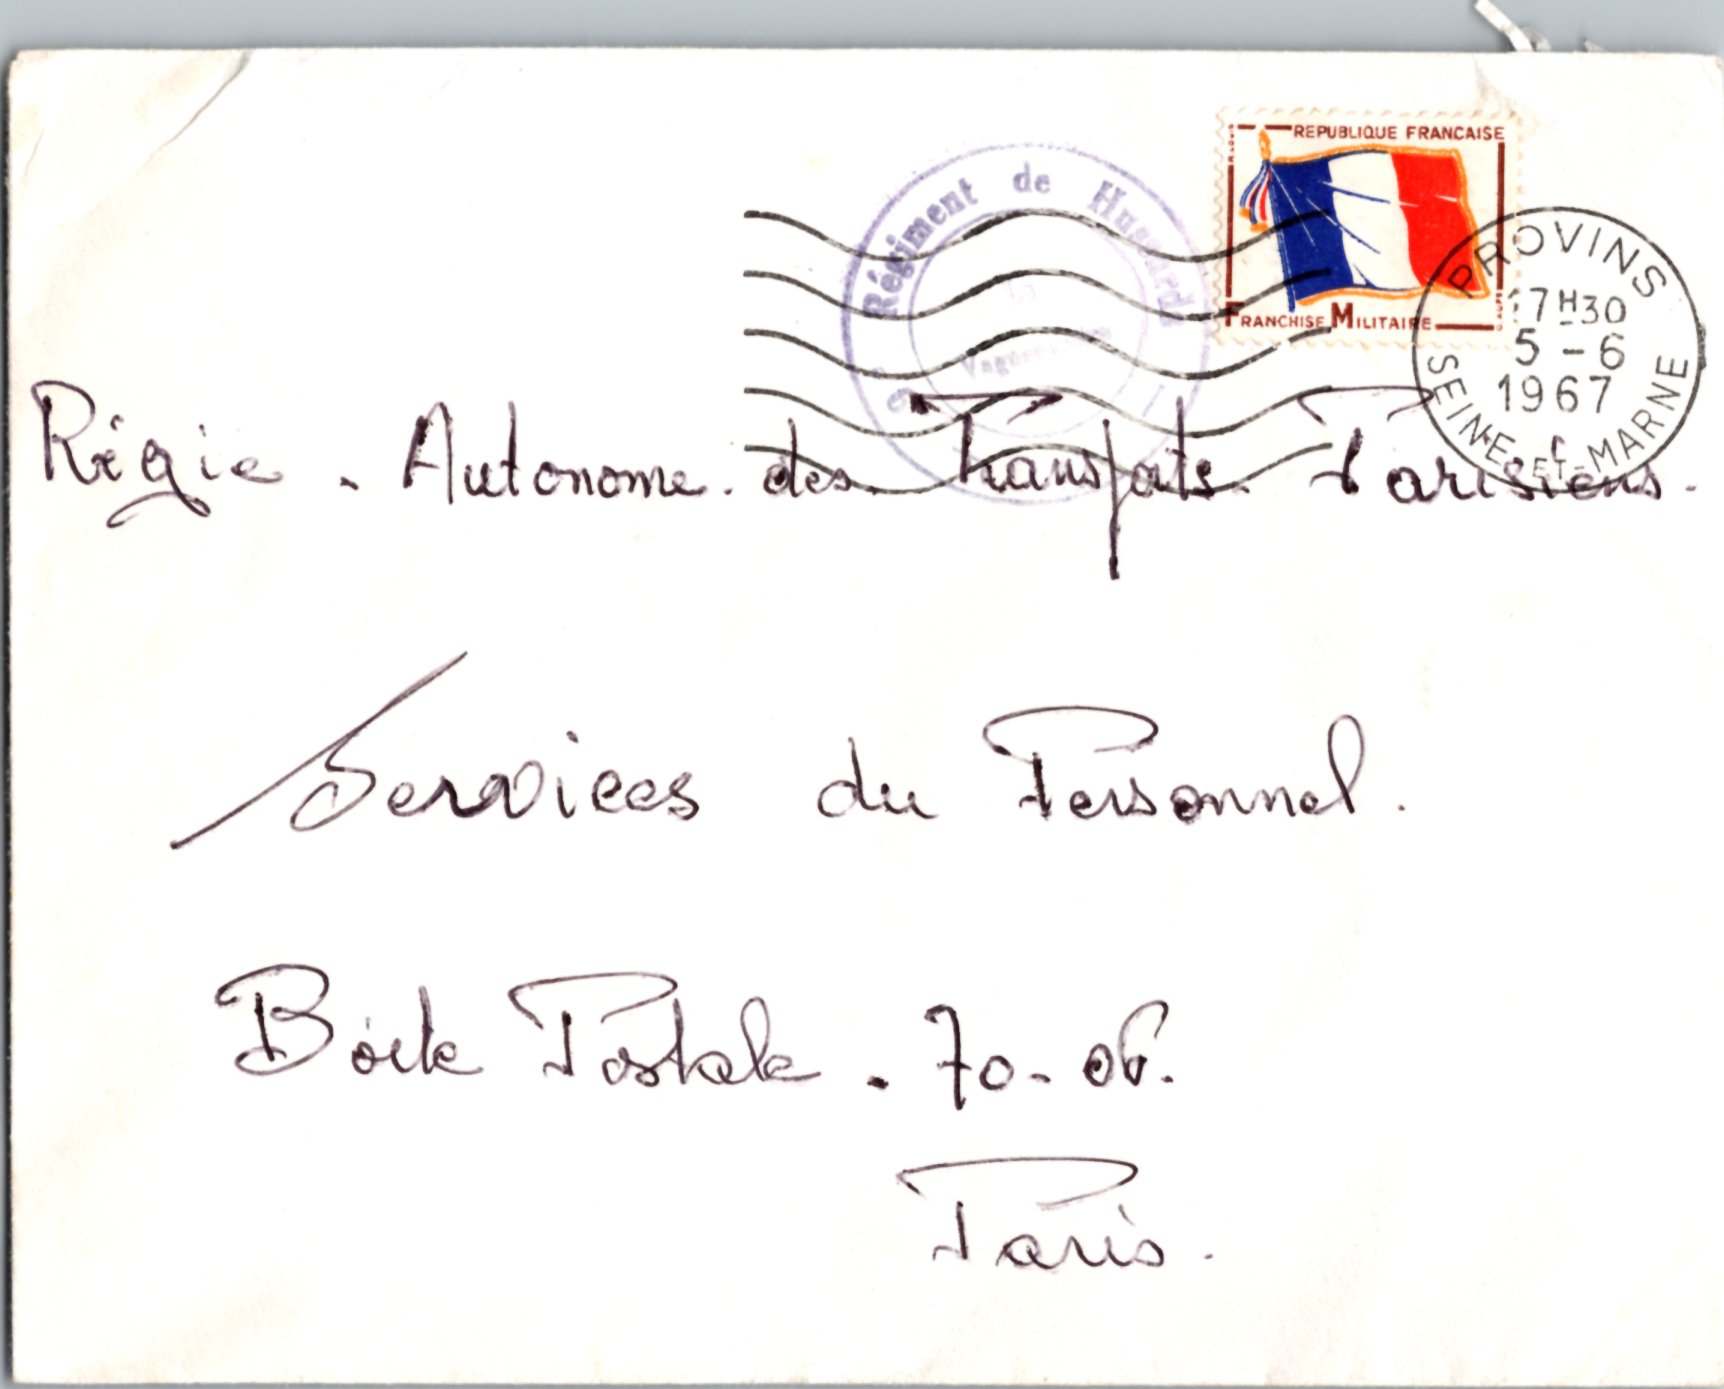 REPUBLIQUE FRANCAISE
FRANCHISE MILITAIRE
Régiment de Hussards
PROVINS
17H30
5 - 6
1967
SEINE-ET-MARNE
Régie . Autonome . des . Transports . Parisiens .
Services du Personnel .
Boite Postale . 70 - 06 .
Paris .